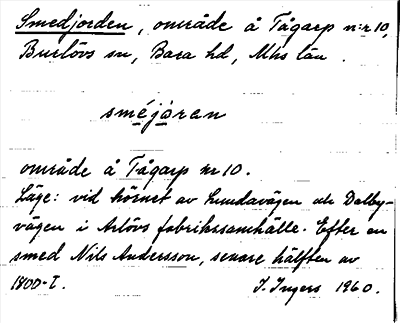 Smedjorden, område å Tågarp n:r 10,
Burlövs sn, Bara hd, Mhs län.
sméjåren
område å Tågarp nr 10.
Läge: vid hörnet av Lundavägen och Dalby-
vägen i Arlövs fabrikssamhälle. Efter en
smed Nils Andersson, senare hälften av
1800-t.
I. Ingers 1960.